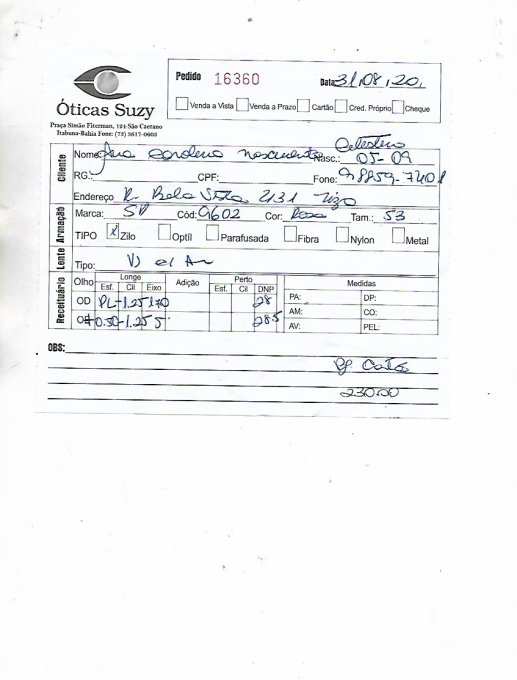 Pedido 16360 Data 31,08,20,
Venda a Vista Venda a Prazo Cartão Cred. Próprio Cheque
Óticas Suzy
Praça Simão Fiterman, 121 São Caetano
Itabuna-Bahia Fone: (73) 3617-0603
Cliente
Nome: Ana Nascimento Nasc.: 05-09
RG.: CPF: Fone: 98859-7401
Endereço R. Bela Vista 2131
Armação
Marca: SV Cód: 9602 Cor: Rosa Tam.: 53
TIPO X Zilo Optil Parafusada Fibra Nylon Metal
Lente
Tipo:
Receituário
Olho Longe Adição Perto Medidas
Esf. Cil Eixo Esf. Cil DNP
OD PL -1.25 170 28 PA: DP:
OE +0.50 -1.25 5 28.5 AM: CO:
AV: PEL:
OBS:
230.00